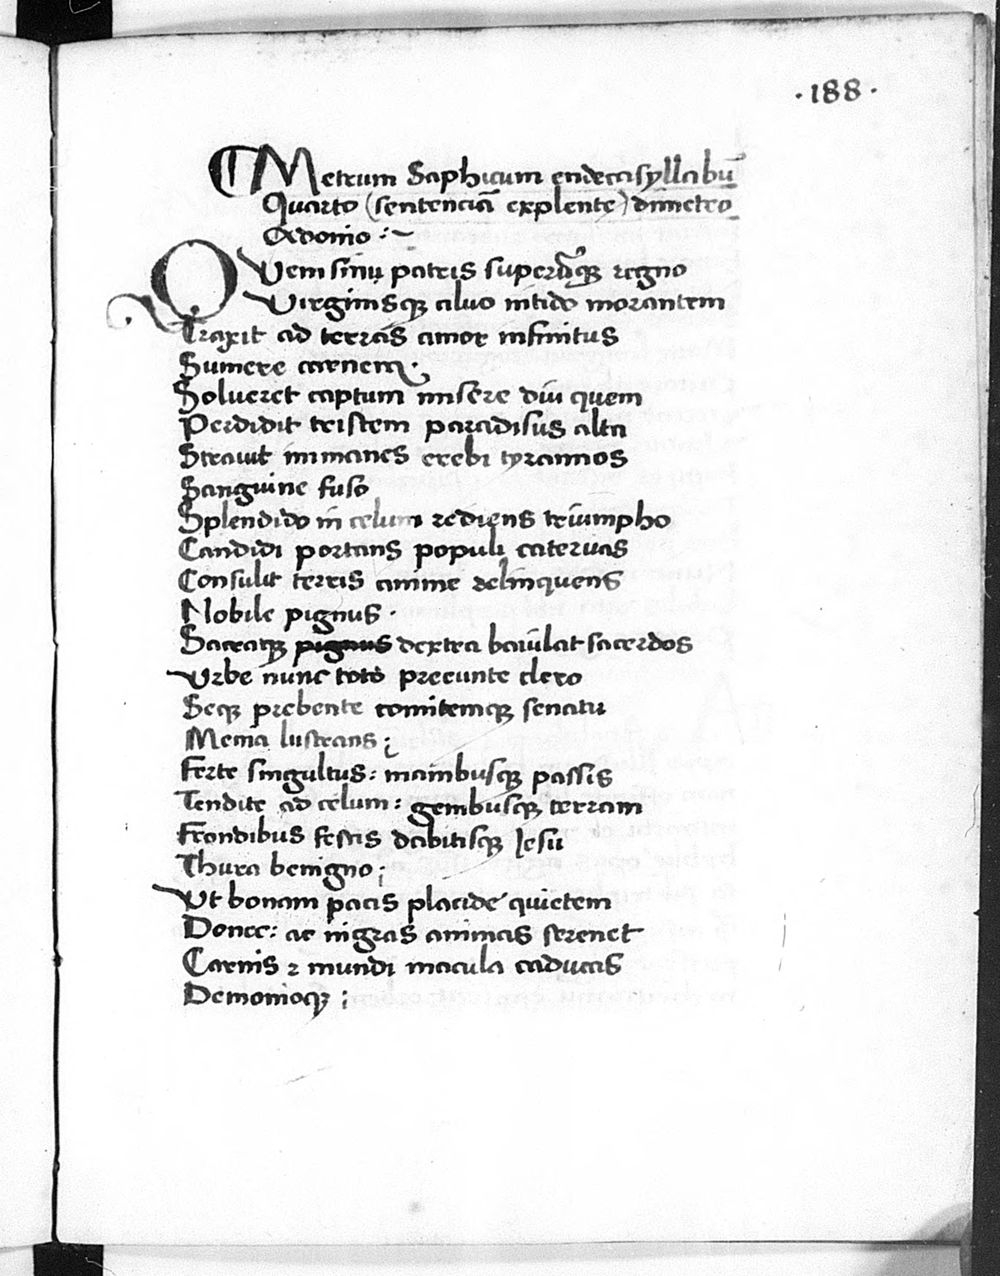 ·188·
Metrum Saphicum endecasyllabū
Quarto (sentenciā explente) dimetro
Adonio :~
Quem sinu patris superūqꝫ regno
Virginisqꝫ aluo nitido morantem
Traxit ad terras amor infinitus
Sumere carnem.
Solueret captum misere diu quem
Perdidit tristem paradisus alta
Strauit immanes erebi tyrannos
Sanguine fuso
Splendido in celum rediens triumpho
Candidi portans populi cateruas
Consulit terris anime relinquens
Nobile pignus.
Sacraqꝫ pignus dextra baiulat sacerdos
Vrbe nunc toto preeunte clero
Seqꝫ prebente comitemqꝫ senatu
Menia lustrans;
Ferte singultus: manibusqꝫ passis
Tendite ad celum: genibusqꝫ terram
Frondibus festis dabitisqꝫ Iesu
Thura benigno;
Vt bonam pacis placide quietem
Donec: ac nigras animas serenet
Carnis ⁊ mundi macula caducas
Demonioqꝫ;